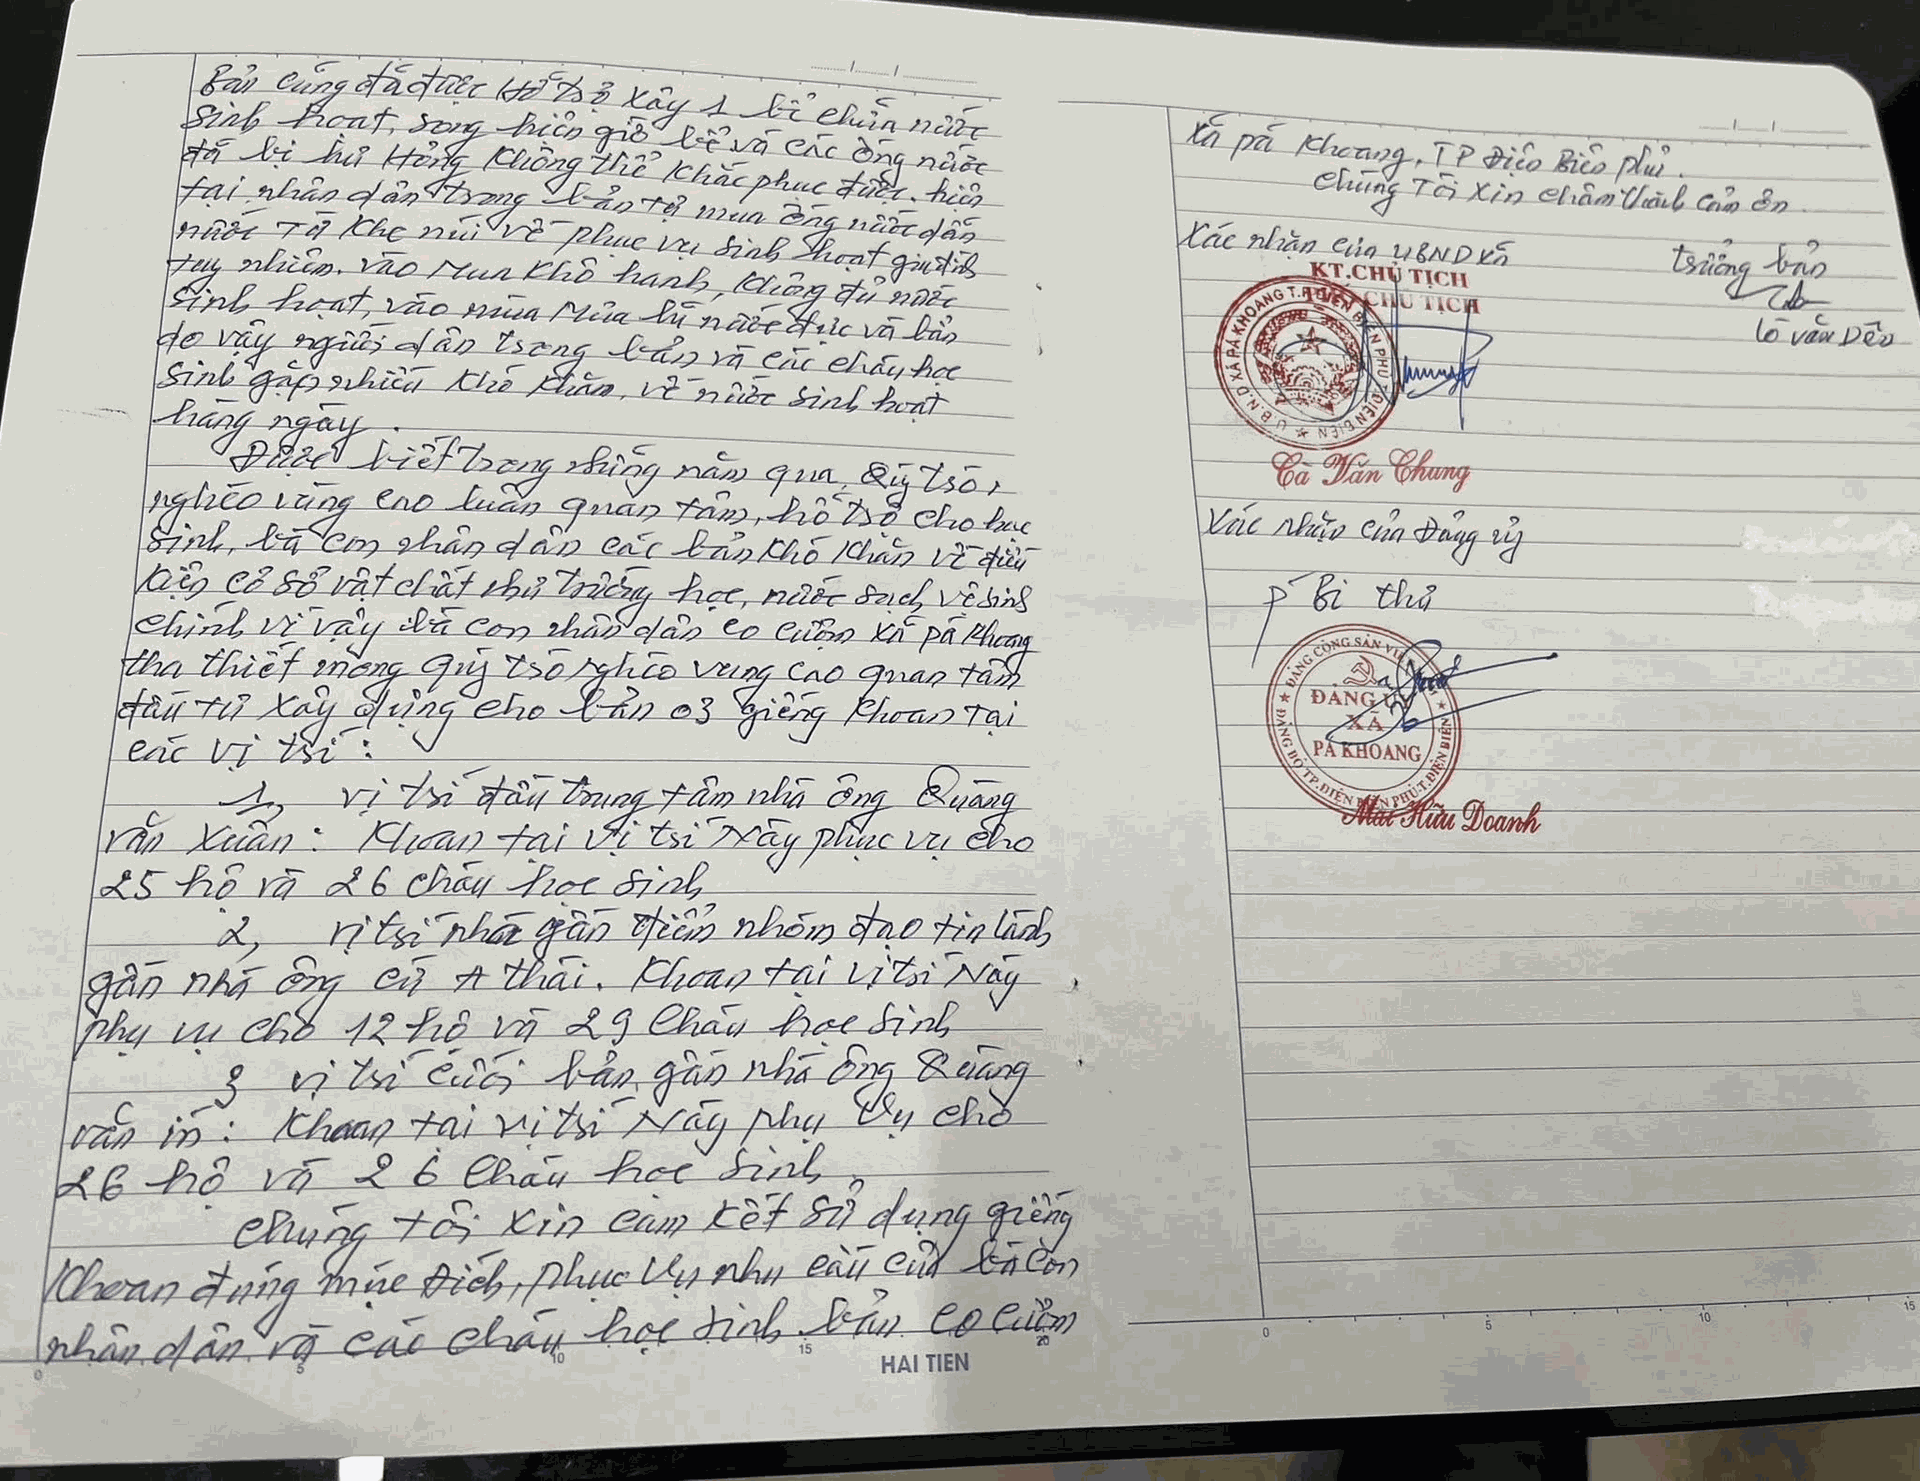 Bản cũng đã được Hỗ trợ xây 1 bể chứa nước
Sinh hoạt, song hiện giờ bể và các ống nước
đã bị hư Hỏng Không thể Khắc phục được. hiện
tại nhân dân trong bản tự mua ống nước dẫn
nước Từ Khe núi về phục vụ Sinh hoạt gia đình
tuy nhiên. vào Mua Khô hanh, Không đủ nước
Sinh hoạt, vào mùa Mưa lũ nước đục và bẩn
do vậy người dân trong bản và các cháu học
Sinh gặp nhiều Khó Khăn, về nước Sinh hoạt
hàng ngày.
Được biết trong những năm qua, Quỹ trò
nghèo vùng cao luôn quan tâm, hỗ trợ cho học
Sinh, bà con nhân dân các bản Khó Khăn về điều
Kiện cơ sở vật chất như Trường học, nước sạch, vệ sinh
chính vì vậy bà con nhân dân co cượm xã pá Khoang
tha thiết mong Quỹ trò nghèo vùng cao quan tâm
đầu tư xây dựng cho bản 03 giếng Khoan Tại
các vị trí :
1, vị trí đầu trung tâm nhà ông Quàng
văn Xuân : Khoan tại vị trí Này phục vụ cho
25 hộ và 26 cháu học sinh
2, vị trí nhà gần điểm nhóm đạo tin lành
gần nhà ông cứ A thái. Khoan tại vị trí Này
phụ vụ cho 12 hộ và 29 cháu học sinh
3 vị trí cuối bản gần nhà ông Quàng
văn in : Khoan tại vị trí Này phụ vụ cho
26 hộ và 26 cháu học sinh,
chúng tôi xin cam kết sử dụng giếng
Khoan đúng mục Đích, phục vụ nhu cầu của bà con
nhân dân và các cháu học sinh bản co cượm
0 5 10 15 20
HAI TIEN
xã pá Khoang, TP Điện Biên phủ.
chúng Tôi xin chân thành cảm ơn.
Xác nhận của UBND xã
trưởng bản
KT.CHỦ TỊCH
CHỦ TỊCH
U.B.N.D XÃ PÁ KHOANG T.P ĐIỆN BIÊN PHỦ T.ĐIỆN BIÊN
Lò văn Dêu
Cà Văn Chung
Xác nhận của Đảng uỷ
P Bí thư
ĐẢNG CỘNG SẢN
ĐẢNG ỦY
XÃ
PÁ KHOANG
ĐẢNG BỘ TP.ĐIỆN BIÊN PHỦ-T.ĐIỆN BIÊN
Mai Hữu Doanh
0 5 10 15